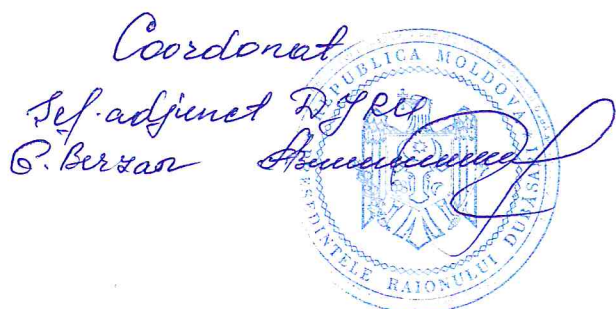 Coordonat
Șef. adjunct
G. Berzan
REPUBLICA MOLDOVA
PREȘEDINTELE RAIONULUI DUBĂSARI